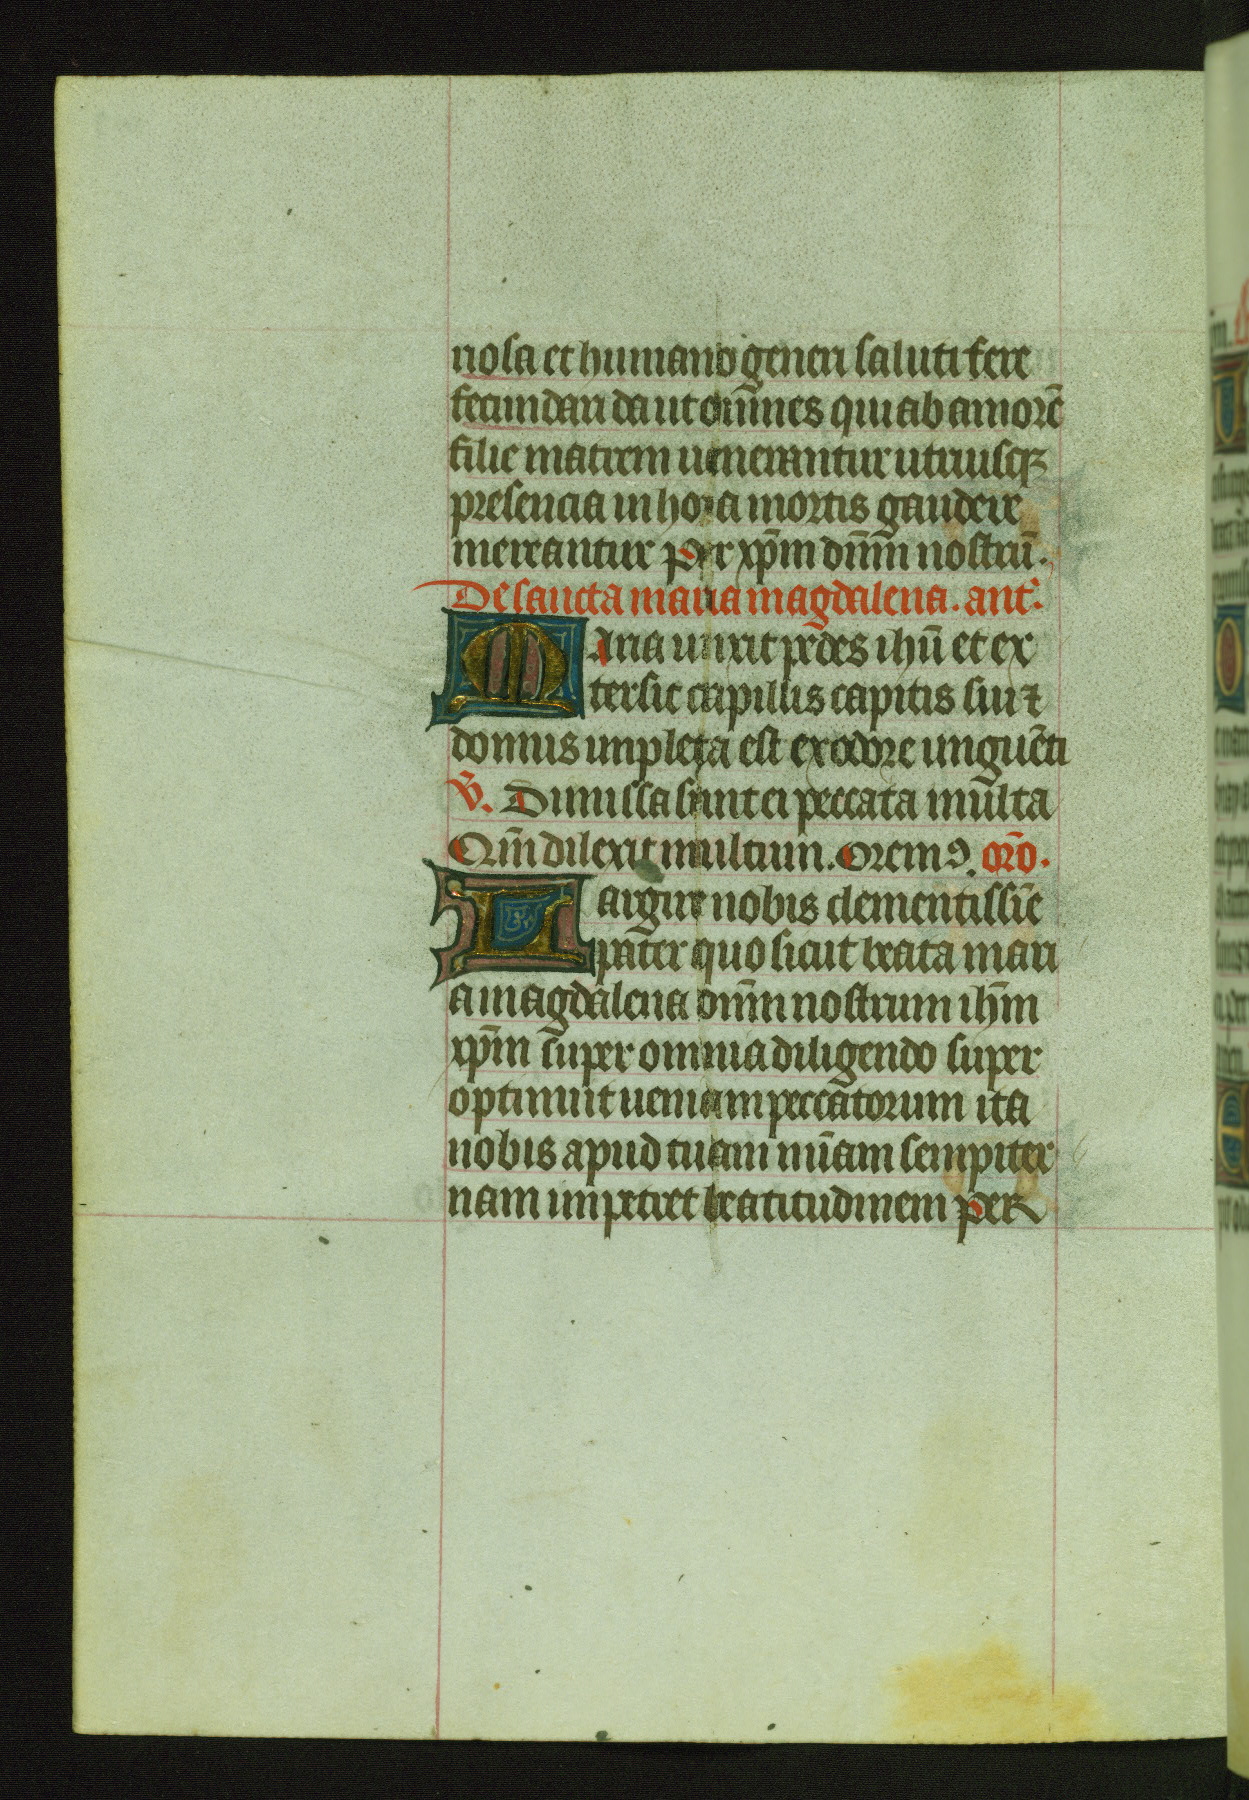 riosa et humano generi salutifere
fecundari da ut om̄nes qui ab amorē
filie matrem uenerantur utriusqꝫ
presencia in hora mortis gaudere
mereantur Per xp̄m dn̄m nostrū.
De sancta maria magdalena. ant̄.
Maria unxit pedes ihū et ex
tersit capillis capitis sui ⁊
domus impleta est ex odore unguēti
V̄. Dimissa sunt ei peccata multa
Qm̄ dilexit multum. Oremꝰ. or̄o.
Largire nobis clementissīe
pater quo sicut beata mari
a magdalena dn̄m nostrum ih̄m
xp̄m super omnia diligendo super
optinuit ueniam peccatorum ita
nobis apud tuam mīam sempiter
nam impetret beatitudinem Per